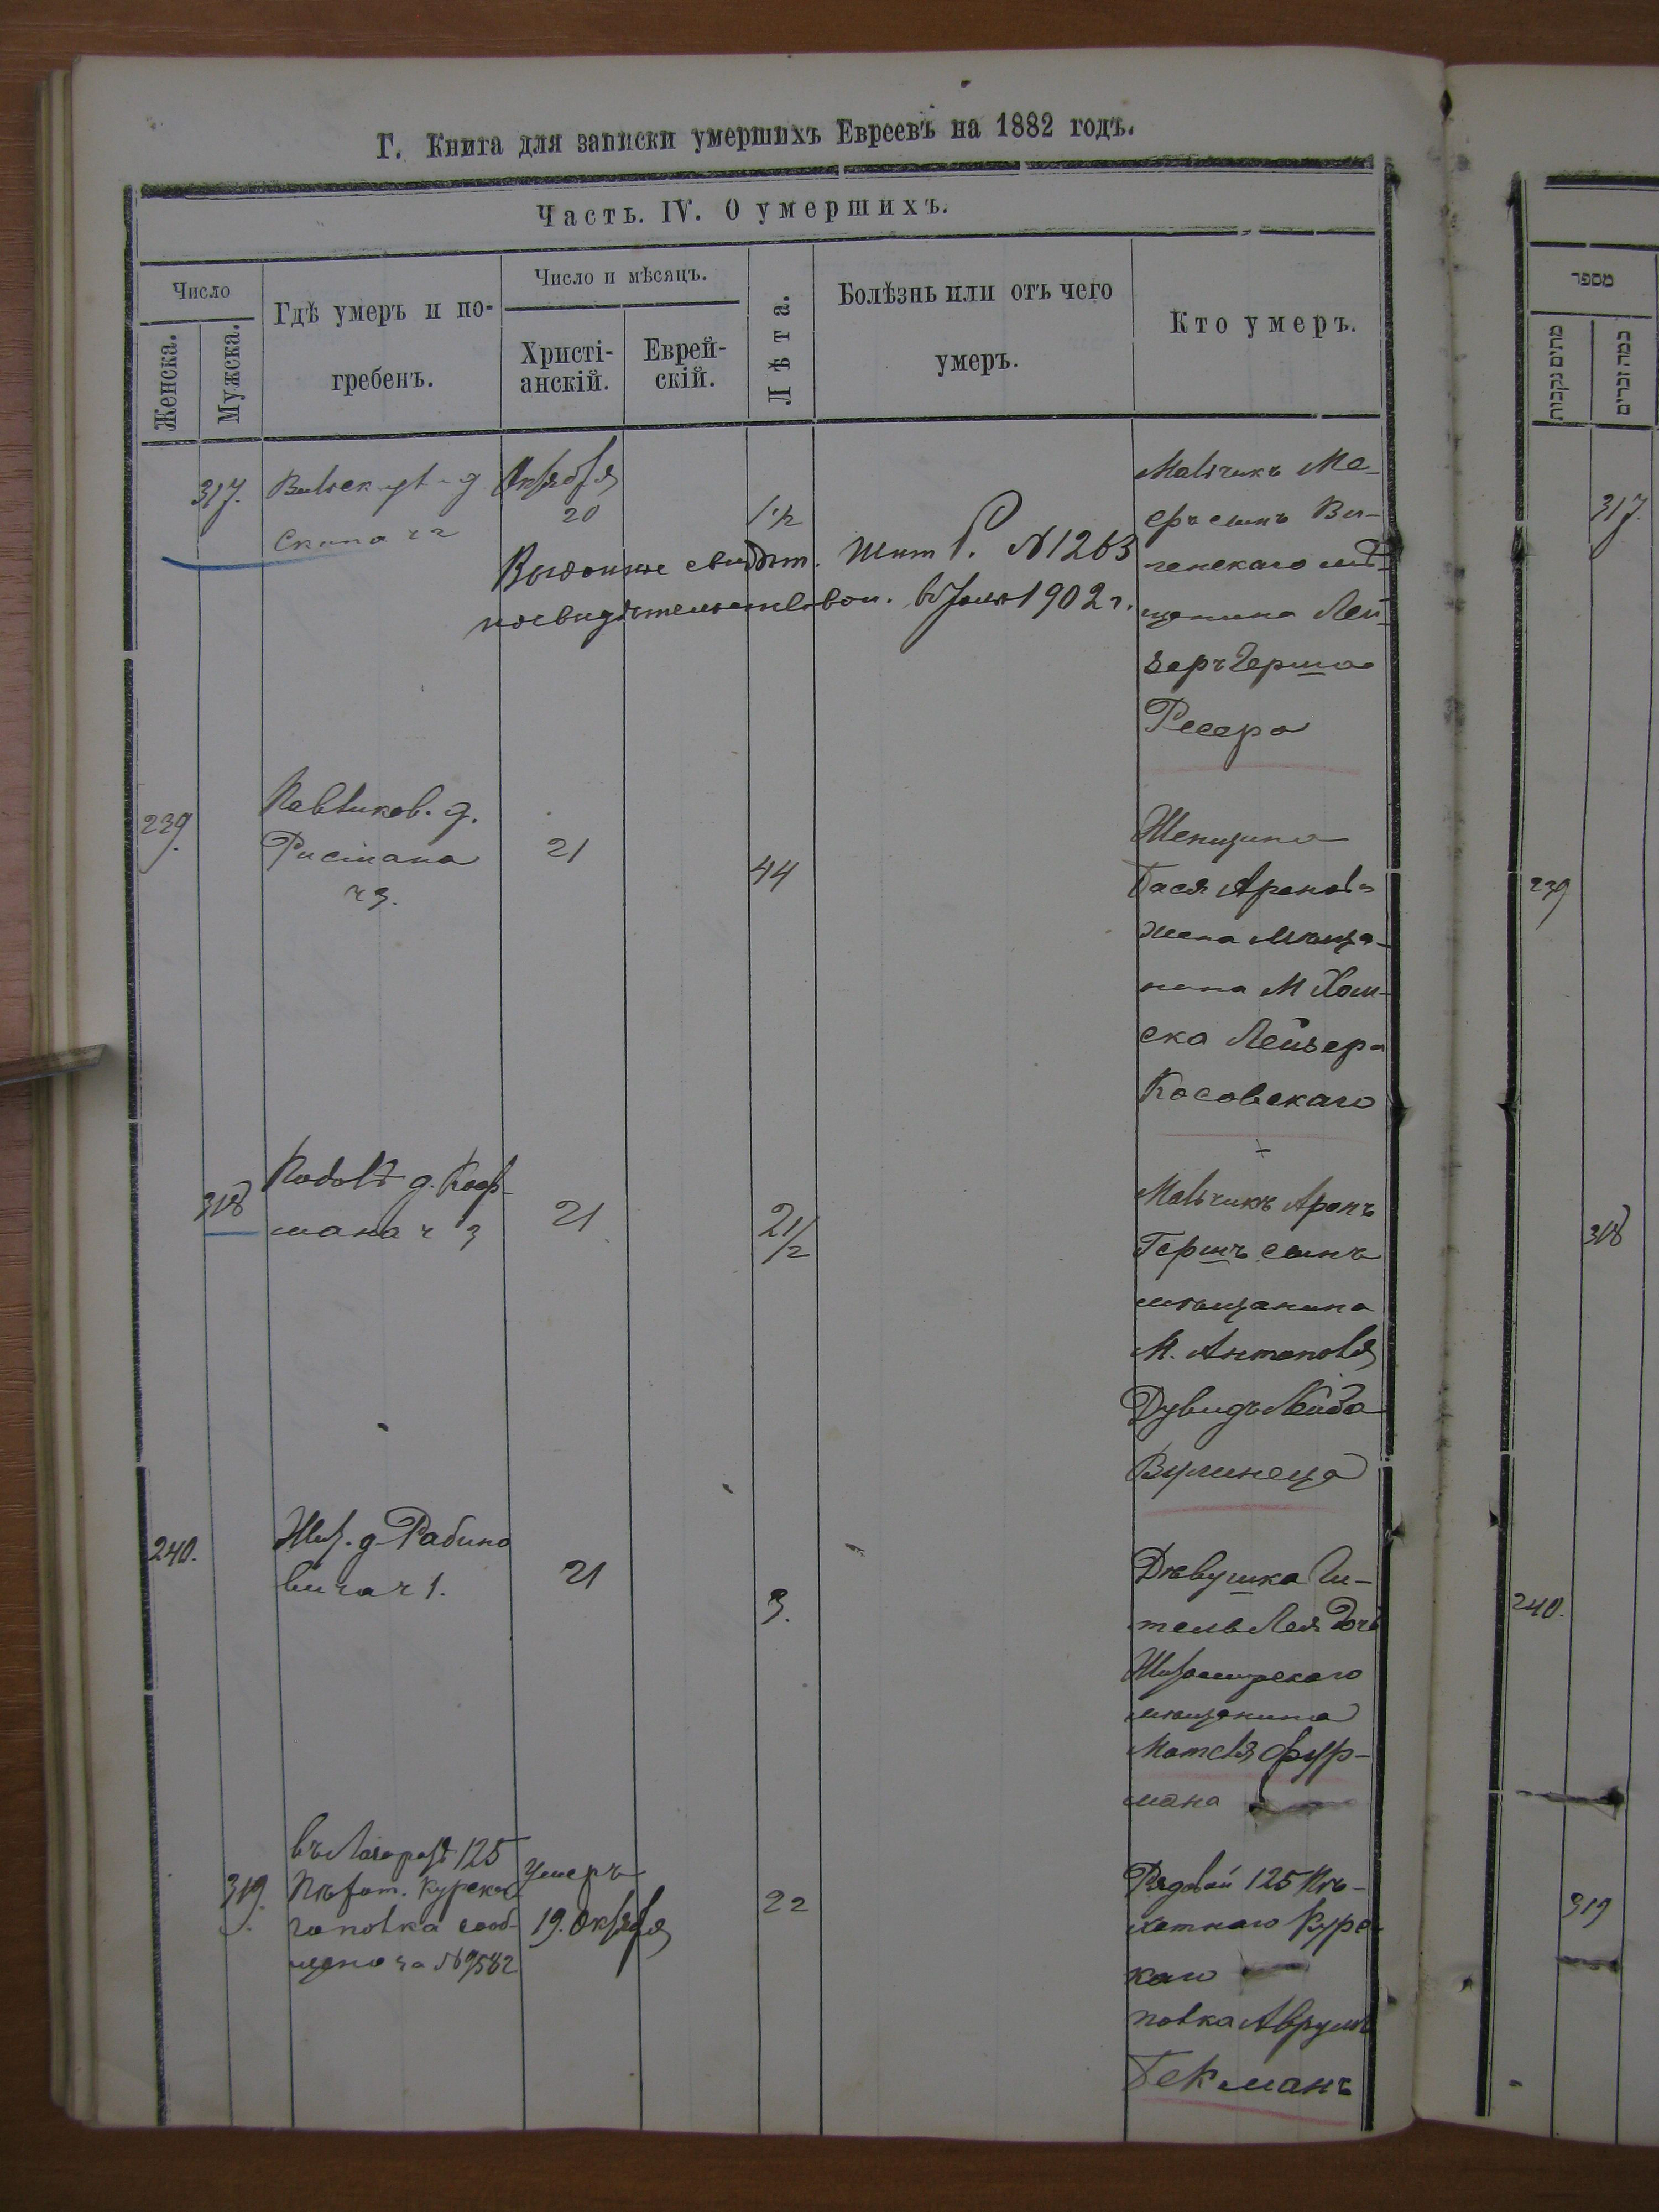 Г. Книга для записки умершихъ Евреевъ на 1882 годъ.
Часть. IV. О умершихъ.
Число
Женска.
Мужска.
Гдѣ умеръ и по-
гребенъ.
Число и мѣсяцъ.
Христі-
анскій.
Еврей-
скій.
Лѣта.
Болѣзнь или отъ чего
умеръ.
Кто умеръ.
317.
Октября
20
1/2
№ 1263
1902 г.
Мальчикъ Ме-
еръ сынъ Ви-
ленскаго мѣ-
щанина Лей-
зеръ Герша
239.
д.
ч 3.
21
44
Женщина
Бася Аронова
жена мѣща-
нина М Хом-
ска Лейзера
Косовскаго
318
д.
мана ч 3
21
2 1/2
Мальчикъ Аронъ
Гершъ сынъ
мѣщанина
М. Антополя
Дувидъ Лейба
Вулинеца
240.
Жит. д. Рабино
вича ч 1.
21
3.
Дѣвушка Ги-
тель Лея дочь
Житомирскаго
мѣщанина
Матвія Фур-
мана
319.
въ Лазаретѣ 125
Пѣхот. Курска
го полка сооб-
щено за № 9582
умеръ
19. Октября
22
Рядовой 125 Пѣ-
хотнаго Курс
каго
полка Аврумъ
Бекманъ
מספר
מתים נקבות
כמה זכרים
317.
239
318
240.
319